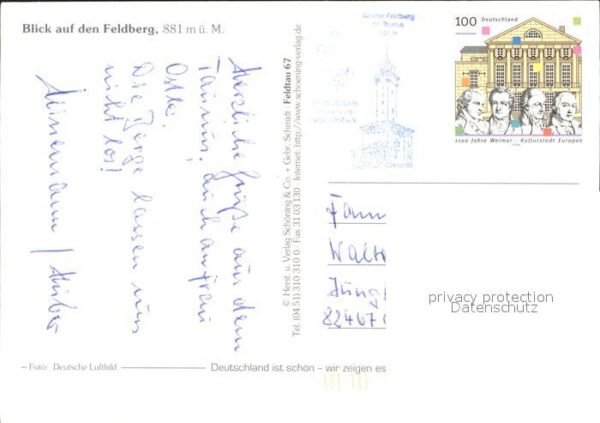 Blick auf den Feldberg, 881 m ü. M.
Herzliche Grüße aus dem
Taunus, auch an Frau
Die Berge lassen uns
nicht los!
© Herst. u. Verlag Schöning & Co. + Gebr. Schmidt
Feldtau 67
Tel. (04 51) 310 310 0 · Fax 31 03 130 · Internet: http://www.schoening-verlag.de
Großer Feldberg
im Taunus
100 Deutschland
1100 Jahre Weimar - Kulturstadt Europas
Fam
Walt
Jung
82467
privacy protection
Datenschutz
Foto: Deutsche Luftbild
Deutschland ist schön – wir zeigen es